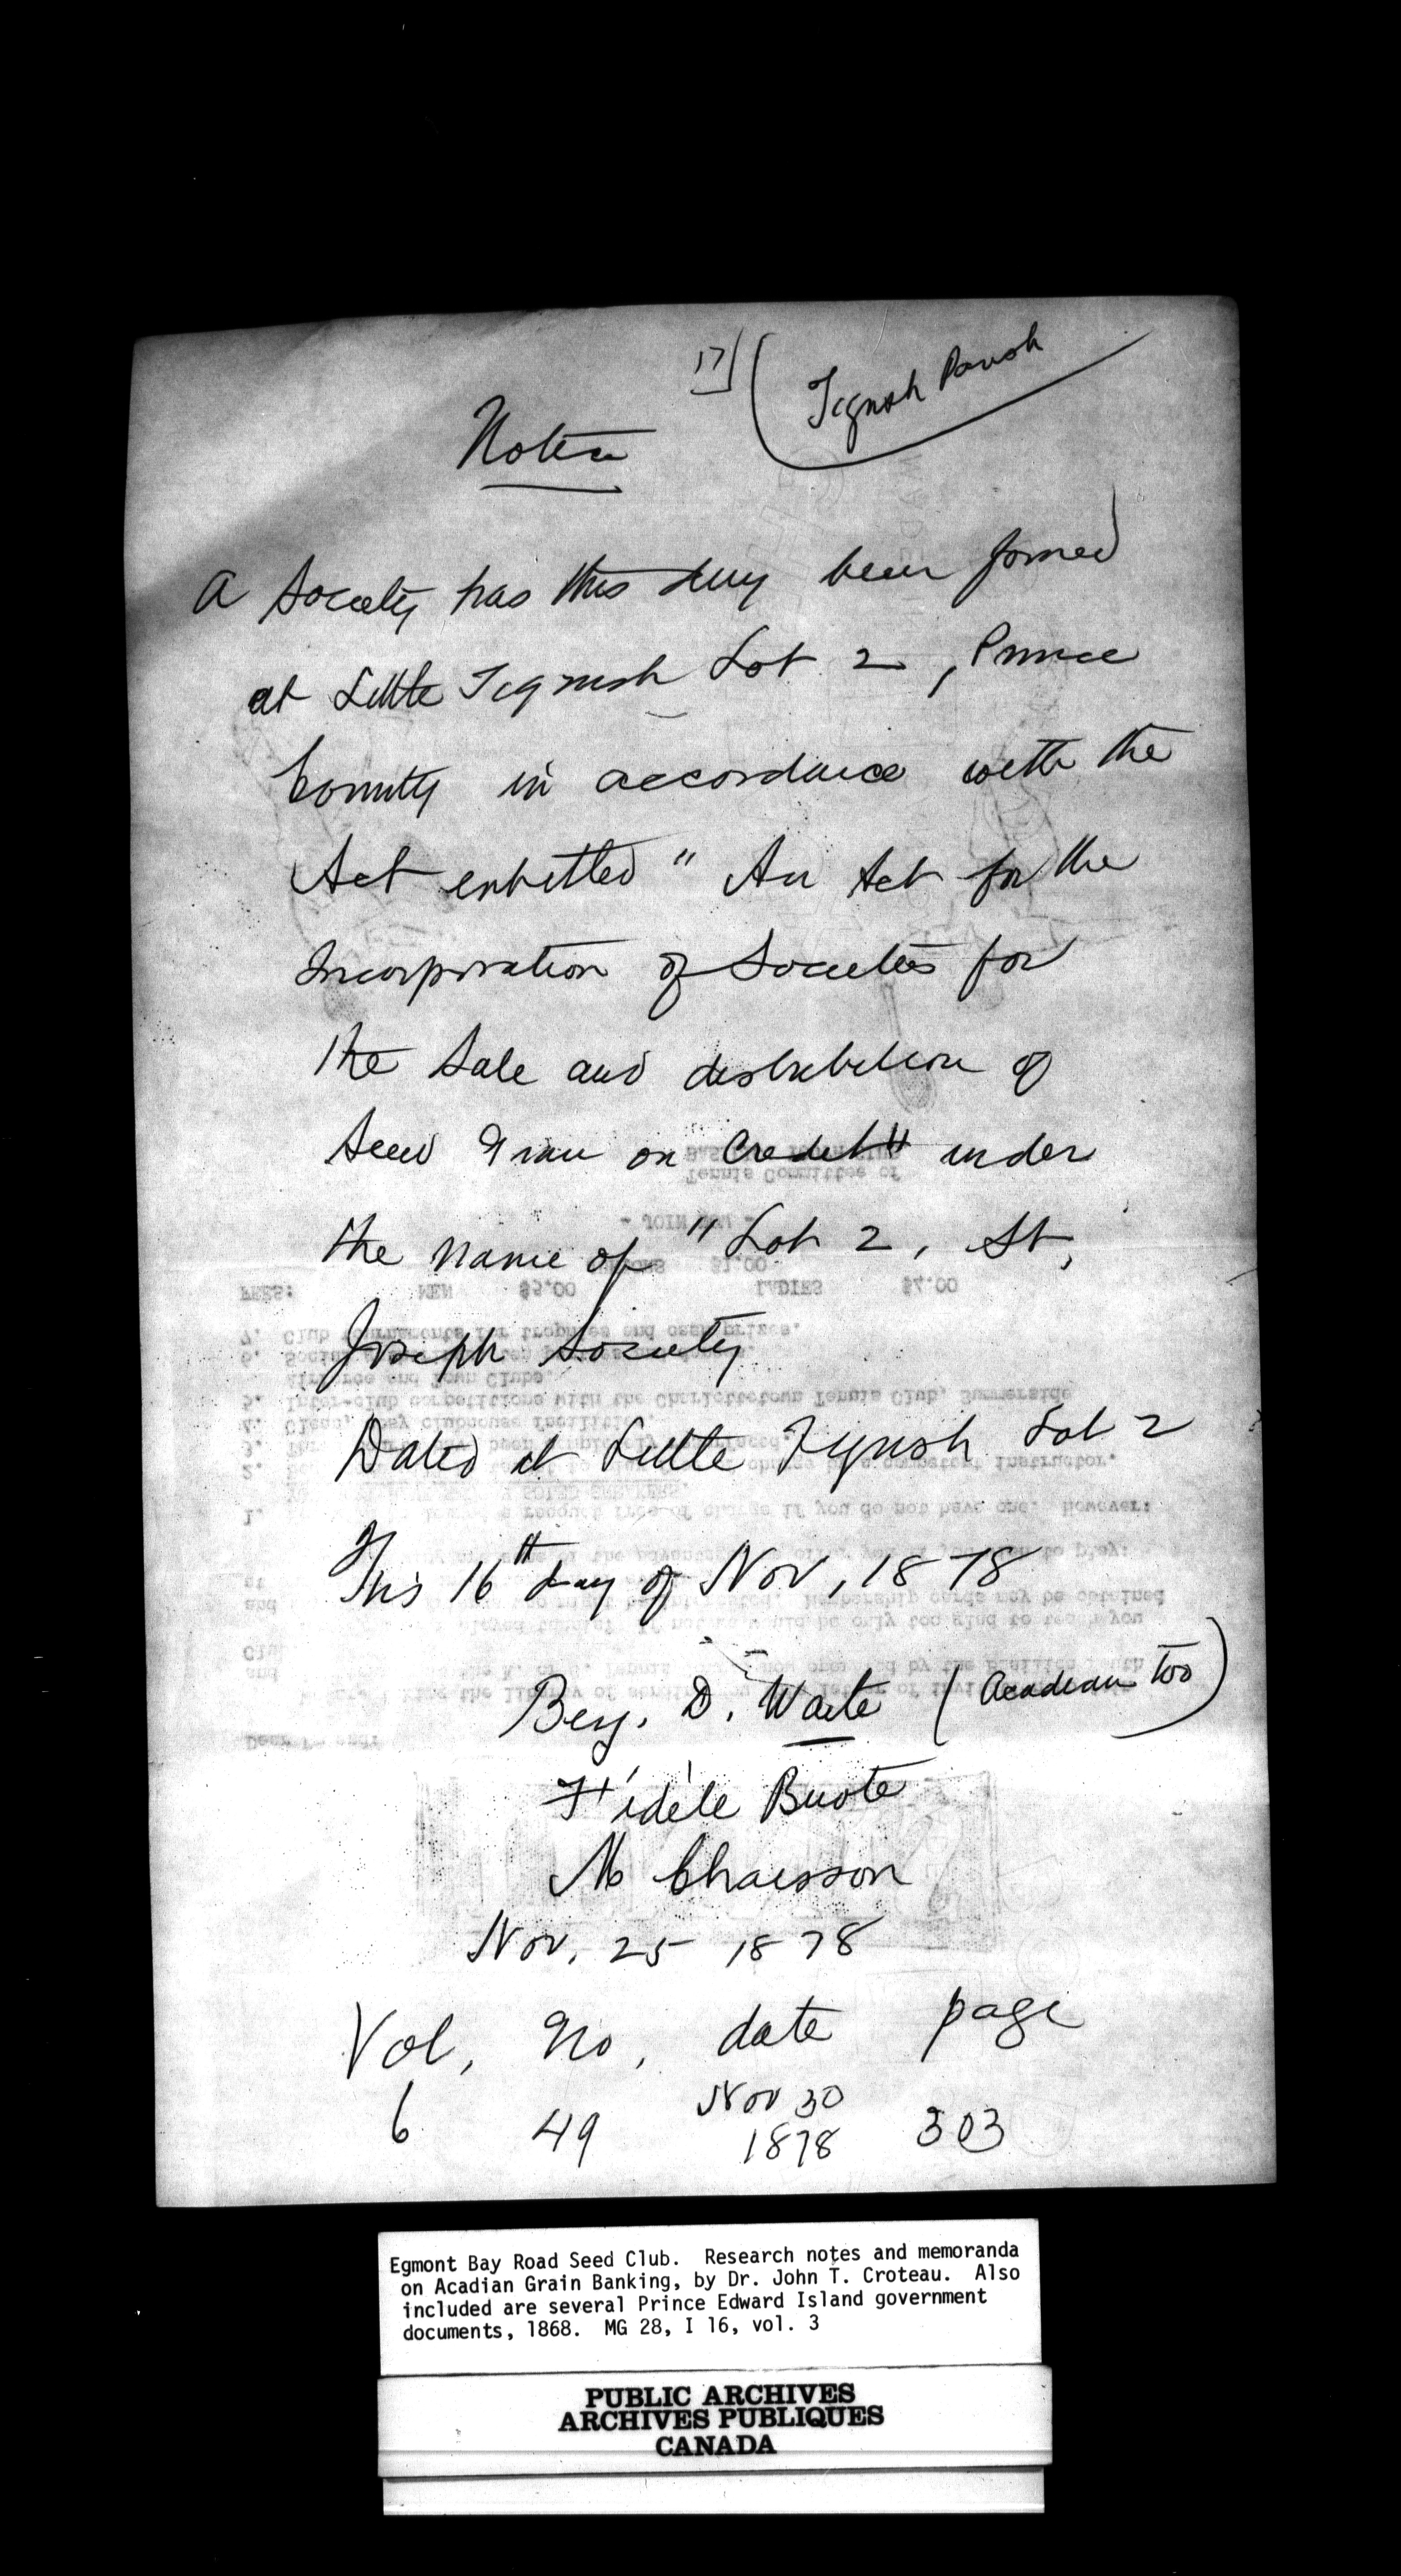 17)
(Tignish Parish
Notice
A Society has this day been formed
at Little Tignish Lot 2, Prince
County in accordance with the
Act entitled " An Act for the
Incorporation of Societies for
the Sale and distribution of
Seed Grain on Credit" under
the name of "Lot 2, St,
Joseph Society
Dated at Little Tignish Lot 2
This 16th day of Nov, 1878
Benj. D. Waite (Acadian too)
Fidèle Buote
M Chaisson
Nov. 25 1878
Vol, No, date page
6 49 Nov 30 1878 303
Egmont Bay Road Seed Club. Research notes and memoranda
on Acadian Grain Banking, by Dr. John T. Croteau. Also
included are several Prince Edward Island government
documents, 1868. MG 28, I 16, vol. 3
PUBLIC ARCHIVES
ARCHIVES PUBLIQUES
CANADA